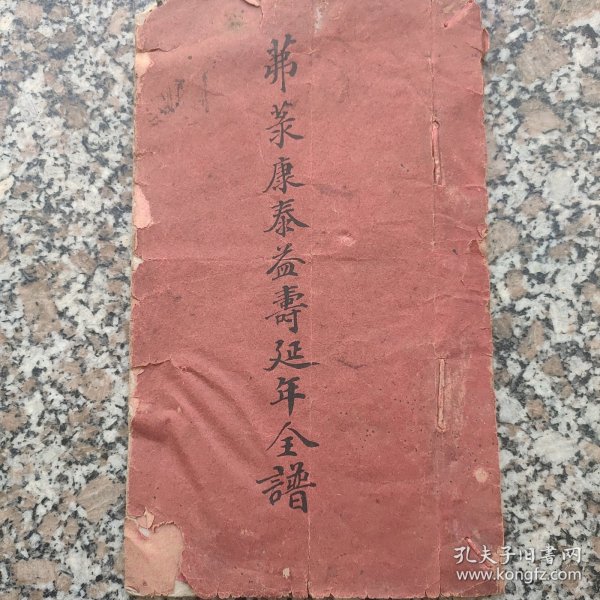 茀菉康泰益壽延年全譜
孔夫子旧书网
www.kongfz.com